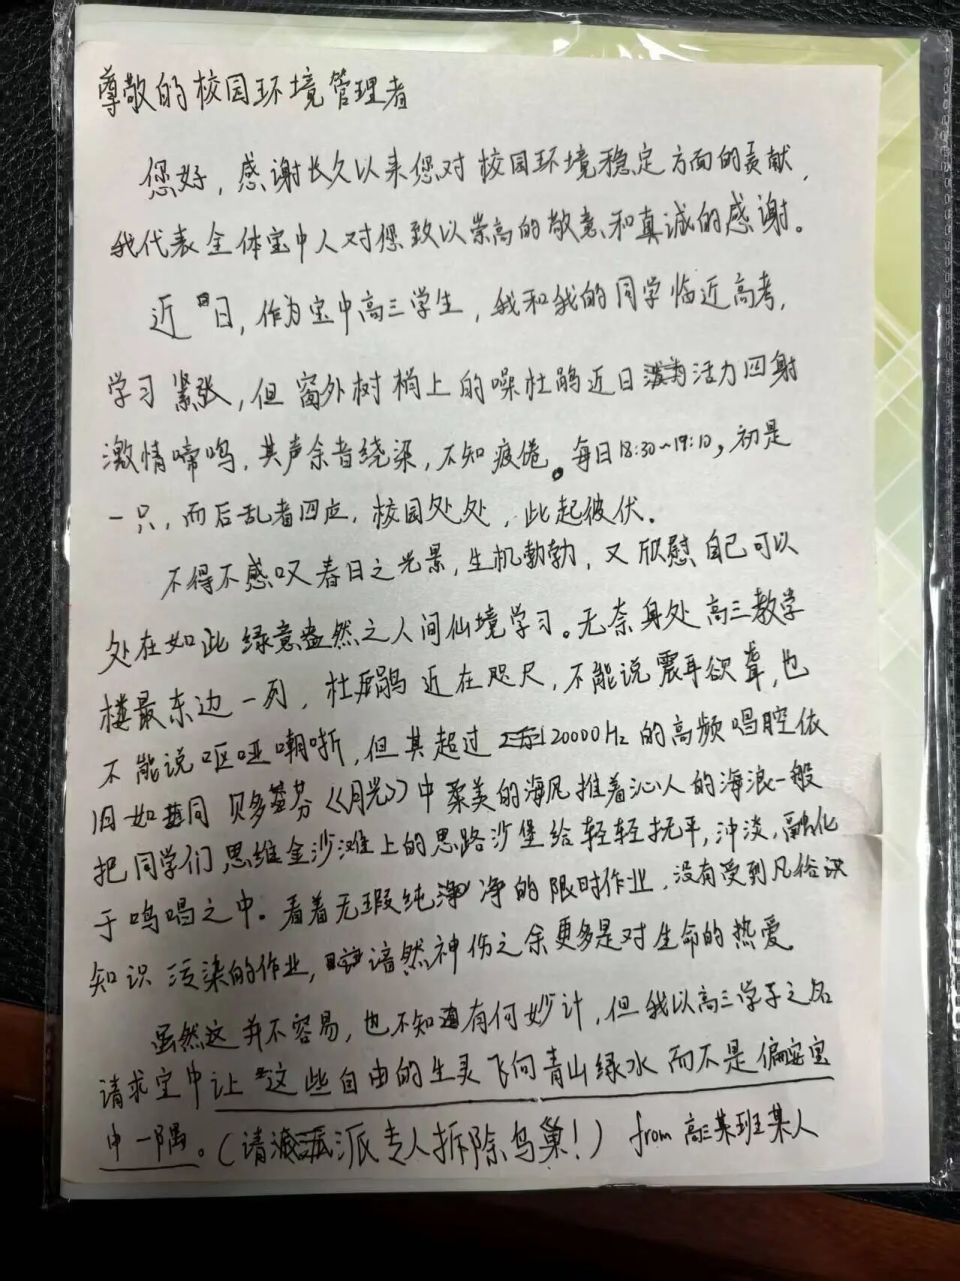 尊敬的校园环境管理者
您好，感谢长久以来您对校园环境稳定方面的贡献，
我代表全体宝中人对您致以崇高的敬意和真诚的感谢。
近日，作为宝中高三学生，我和我的同学临近高考，
学习紧张，但窗外树梢上的噪杜鹃近日活力四射
激情啼鸣，其声余音绕梁，不知疲倦。每日18:30~19:10，初是
一只，而后乱者四点，校园处处，此起彼伏。
不得不感叹春日之光景，生机勃勃，又欣慰自己可以
处在如此绿意盎然之人间仙境学习。无奈身处高三教学
楼最东边一列，杜鹃近在咫尺，不能说震耳欲聋，也
不能说呕哑嘲哳，但其超过20000Hz的高频唱腔依
旧如同贝多芬《月光》中柔美的海风推着沁人的海浪一般
把同学们思维金沙滩上的思路沙堡给轻轻抚平，冲淡，融化
于鸣唱之中。看着无瑕纯净的限时作业，没有受到凡俗
知识污染的作业，谙然神伤之余更多是对生命的热爱
虽然这并不容易，也不知有何妙计，但我以高三学子之名
请求宝中让这些自由的生灵飞向青山绿水而不是偏安宝
中一隅。（请派专人拆除鸟巢！） from 高三某班某人